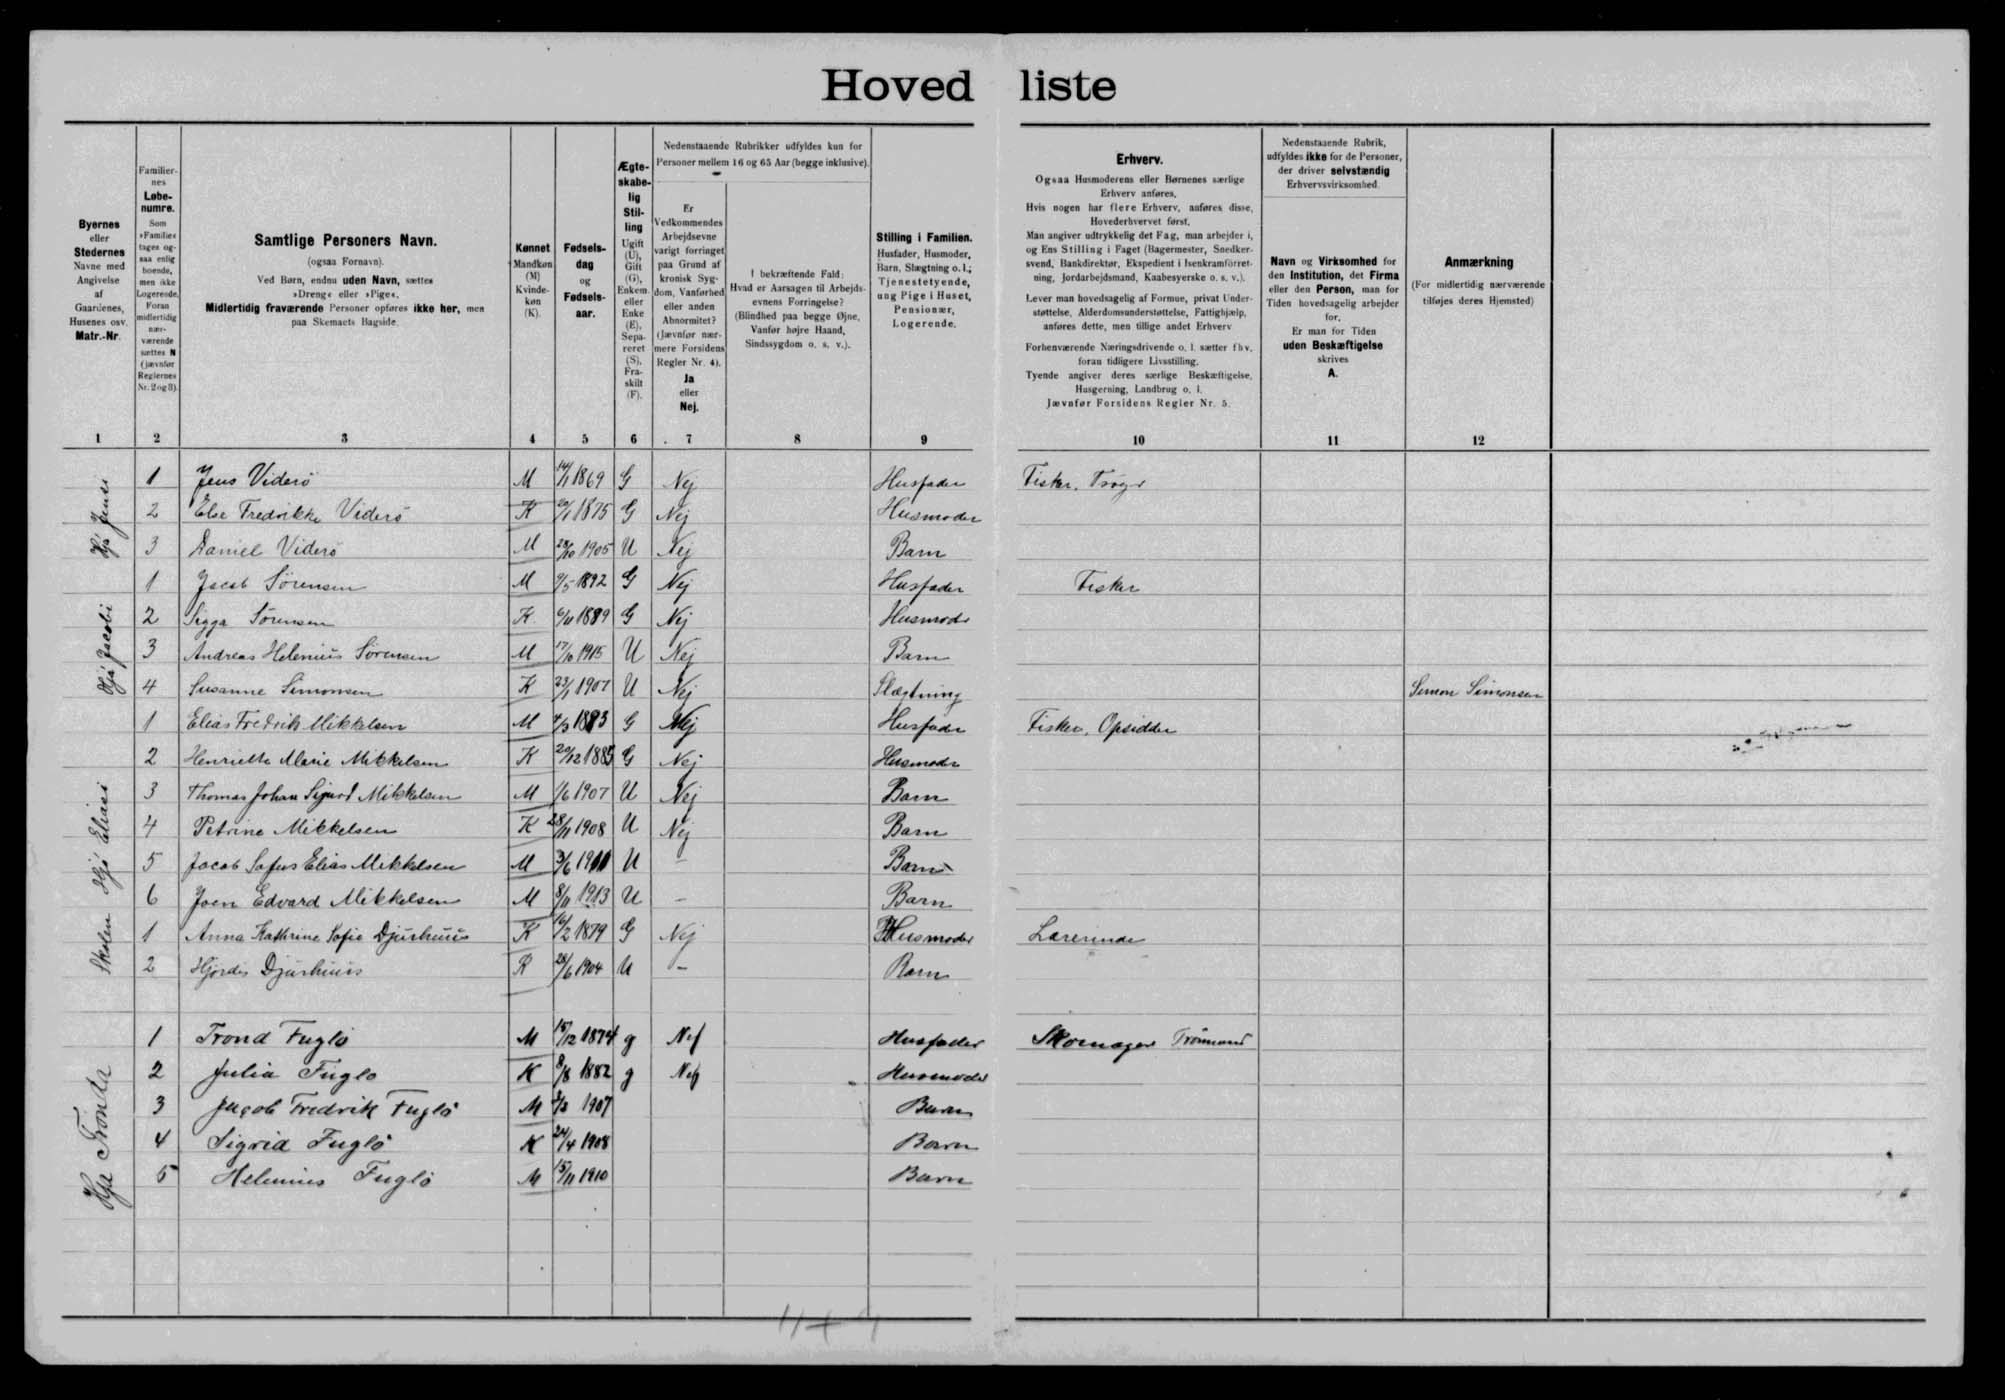 Hovedliste
Byernes eller Stedernes Navne med Angivelse af Gaardenes, Husenes osv. Matr.-Nr.
Familiernes Løbenumre. Som »Familie« tages ogsaa enlig boende, men ikke Logerende. Foran midlertidig nærværende sættes N (jævnfør Reglernes Nr. 2 og 3).
Samtlige Personers Navn.
(ogsaa Fornavn).
Ved Børn, endnu uden Navn, sættes
»Dreng« eller »Pige«.
Midlertidig fraværende Personer opføres ikke her, men
paa Skemaets Bagside.
Kønnet Mandkøn (M) Kvindekøn (K).
Fødselsdag og Fødselsaar.
Ægteskabelig Stilling Ugift (U), Gift (G), Enkem. eller Enke (E), Separeret (S), Fraskilt (F).
Nedenstaaende Rubrikker udfyldes kun for
Personer mellem 16 og 65 Aar (begge inklusive).
Er Vedkommendes Arbejdsevne varigt forringet paa Grund af kronisk Sygdom, Vanførhed eller anden Abnormitet? (Jævnfør nærmere Forsidens Regler Nr. 4). Ja eller Nej.
I bekræftende Fald: Hvad er Aarsagen til Arbejdsevnens Forringelse? (Blindhed paa begge Øjne, Vanfør højre Haand, Sindssygdom o. s. v.).
Stilling i Familien. Husfader, Husmoder, Barn, Slægtning o. l.; Tjenestetyende, ung Pige i Huset, Pensionær, Logerende.
Erhverv.
Ogsaa Husmoderens eller Børnenes særlige
Erhverv anføres.
Hvis nogen har flere Erhverv, anføres disse,
Hovederhvervet først.
Man angiver udtrykkelig det Fag, man arbejder i,
og Ens Stilling i Faget (Bagermester, Snedker-
svend, Bankdirektør, Ekspedient i Isenkramforret-
ning, Jordarbejdsmand, Kaabesyerske o. s. v.).
Lever man hovedsagelig af Formue, privat Under-
støttelse, Alderdomsunderstøttelse, Fattighjælp,
anføres dette, men tillige andet Erhverv
Forhenværende Næringsdrivende o. l. sætter fhv.
foran tidligere Livsstilling.
Tyende angiver deres særlige Beskæftigelse,
Husgerning, Landbrug o. l.
Jævnfør Forsidens Regler Nr. 5.
Nedenstaaende Rubrik,
udfyldes ikke for de Personer,
der driver selvstændig
Erhvervsvirksomhed.
Navn og Virksomhed for
den Institution, det Firma
eller den Person, man for
Tiden hovedsagelig arbejder
for.
Er man for Tiden
uden Beskæftigelse
skrives
A.
Anmærkning
(For midlertidig nærværende
tilføjes deres Hjemsted)
1 2 3 4 5 6 7 8 9 10 11 12
Hjá Jensi
1 Jens Viderö M 14/1 1869 G Nej Husfader Fisker,
2 Else Fredrikke Viderö K 20/1 1875 G Nej Husmoder
3 Daniel Viderö M 28/10 1905 U Nej Barn
Hjá Jacobi
1 Jacob Sörensen M 9/5 1892 G Nej Husfader Fisker
2 Sigga Sörensen K 6/11 1889 G Nej Husmoder
3 Andreas Helenius Sörensen M 17/10 1915 U Nej Barn
4 Susanne Simonsen K 23/1 1907 U Nej Slægtning Simon Simonsen
Hjá Eliasi
1 Elias Fredrik Mikkelsen M 4/3 1883 G Nej Husfader Fisker, Opsidder
2 Henriette Marie Mikkelsen K 20/12 1885 G Nej Husmoder
3 Thomas Johan Sigurd Mikkelsen M 1/6 1907 U Nej Barn
4 Petrine Mikkelsen K 28/11 1908 U Nej Barn
5 Jacob Sofus Elias Mikkelsen M 3/6 1911 U – Barn
6 Joen Edvard Mikkelsen M 8/11 1913 U – Barn
Skolen
1 Anna Kathrine Sofie Djurhuus K 16/2 1879 G Nej Husmoder Lærerinde
2 Hjördis Djurhuus K 28/6 1904 U – Barn
Hja Tronda
1 Trond Fuglö M 15/12 1874 g Nej Husfader Skomager
2 Julia Fuglö K 8/8 1882 g Nej Husmoder
3 Jacob Fredrik Fuglö M 1907 Barn
4 Sigrid Fuglö K 24/4 1908 Barn
5 Helenius Fuglö M 15/11 1910 Barn